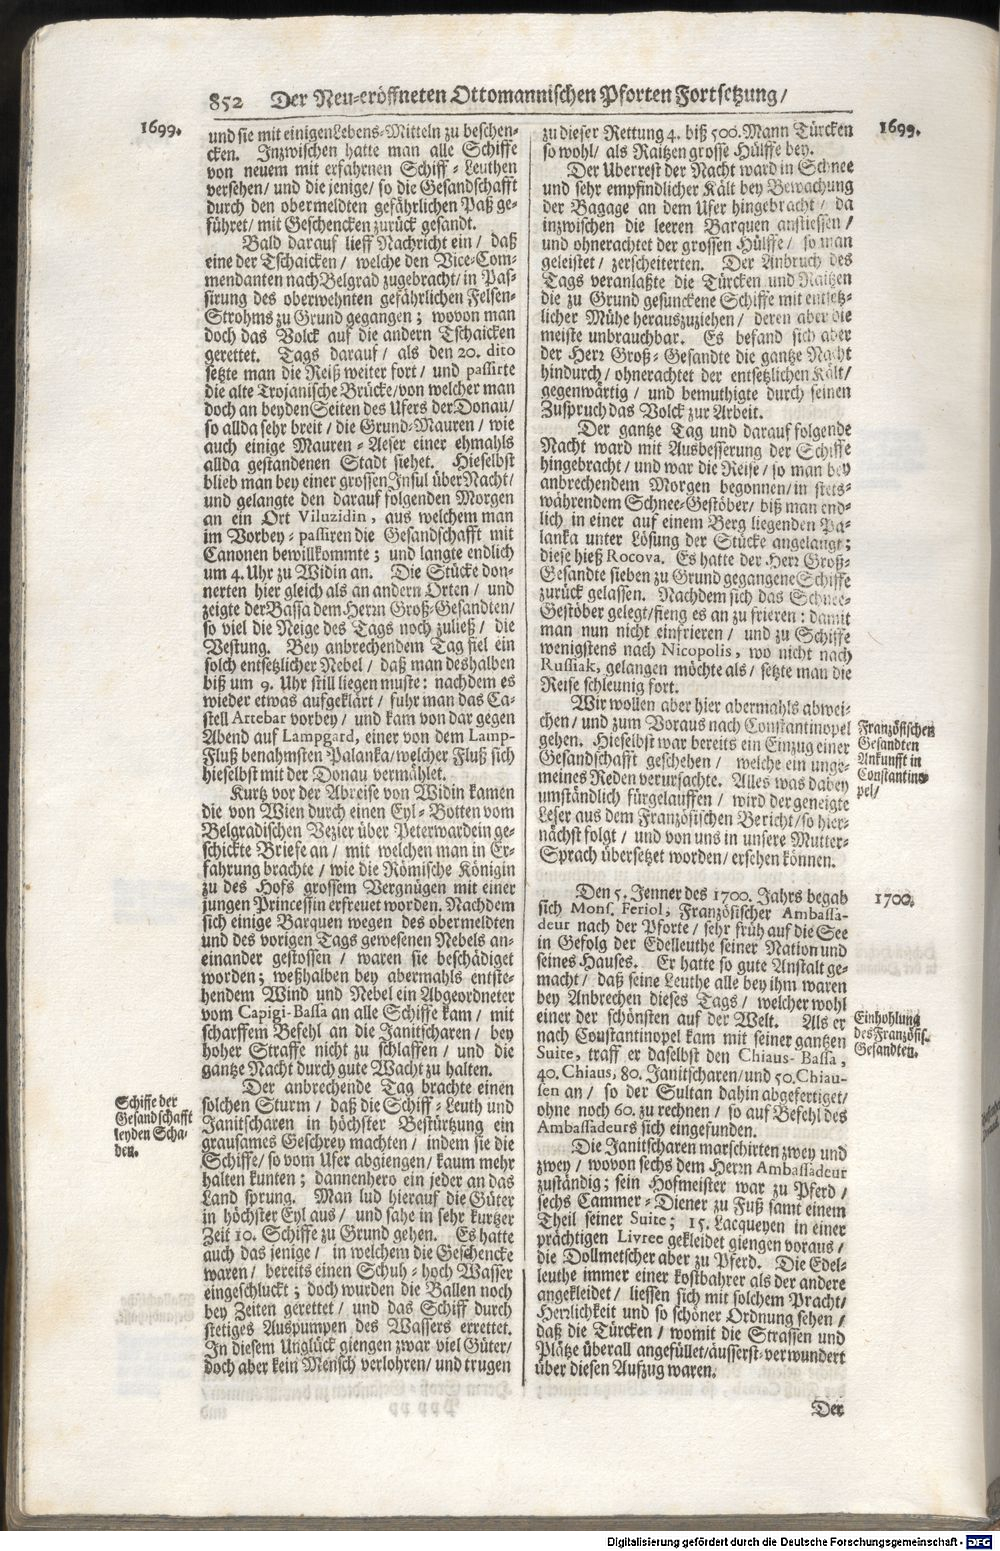 852 Der Neu-eröffneten Ottomannischen Pforten Fortsetzung/
1699.
und sie mit einigen Lebens-Mitteln zu beschen-
cken. Inzwischen hatte man alle Schiffe
von neuem mit erfahrnen Schiff-Leuthen
versehen/ und die jenige/ so die Gesandschafft
durch den obermeldten gefährlichen Paß ge-
führet/ mit Geschencken zurück gesandt.
Bald darauf lieff Nachricht ein/ daß
eine der Tschaicken/ welche den Vice-Com-
mendanten nach Belgrad zugebracht/ in Pas-
sirung des oberwehnten gefährlichen Felsen-
Strohms zu Grund gegangen; wovon man
doch das Volck auf die andern Tschaicken
gerettet. Tags darauf/ als den 20. dito
setzte man die Reiß weiter fort/ und passirte
die alte Trojanische Brücke/ von welcher man
doch an beyden Seiten des Ufers der Donau/
so allda sehr breit/ die Grund-Mauren/ wie
auch einige Mauren-Aeser einer ehmahls
allda gestandenen Stadt siehet. Hieselbst
blieb man bey einer grossen Insul über Nacht/
und gelangte den darauf folgenden Morgen
an ein Ort Viluzidin, aus welchem man
im Vorbey-passiren die Gesandschafft mit
Canonen bewillkommte; und langte endlich
um 4. Uhr zu Widin an. Die Stücke don-
nerten hier gleich als an andern Orten/ und
zeigte der Bassa dem Herrn Groß-Gesandten/
so viel die Neige des Tags noch zuließ/ die
Vestung. Bey anbrechendem Tag fiel ein
solch entsetzlicher Nebel/ daß man deshalben
biß um 9. Uhr still liegen muste: nachdem es
wieder etwas aufgeklärt/ fuhr man das Ca-
stell Artebar vorbey/ und kam von dar gegen
Abend auf Lampgard, einer von dem Lamp-
Fluß benahmsten Palanka/ welcher Fluß sich
hieselbst mit der Donau vermählet.
Kurtz vor der Abreise von Widin kamen
die von Wien durch einen Eyl-Botten vom
Belgradischen Vezier über Peterwardein ge-
schickte Briefe an/ mit welchen man in Er-
fahrung brachte/ wie die Römische Königin
zu des Hofs grossem Vergnügen mit einer
jungen Princessin erfreuet worden. Nachdem
sich einige Barquen wegen des obermeldten
und des vorigen Tags gewesenen Nebels an-
einander gestossen/ waren sie beschädiget
worden; weßhalben bey abermahls entste-
hendem Wind und Nebel ein Abgeordneter
vom Capigi-Bassa an alle Schiffe kam/ mit
scharffem Befehl an die Janitscharen/ bey
hoher Straffe nicht zu schlaffen/ und die
gantze Nacht durch gute Wacht zu halten.
Der anbrechende Tag brachte einen
solchen Sturm/ daß die Schiff-Leuth und
Janitscharen in höchster Bestürtzung ein
grausames Geschrey machten/ indem sie die
Schiffe/ so vom Ufer abgiengen/ kaum mehr
halten kunten; dannenhero ein jeder an das
Land sprung. Man lud hierauf die Güter
in höchster Eyl aus/ und sahe in sehr kurtzer
Zeit 10. Schiffe zu Grund gehen. Es hatte
auch das jenige/ in welchem die Geschencke
waren/ bereits einen Schuh-hoch Wasser
eingeschluckt; doch wurden die Ballen noch
bey Zeiten gerettet/ und das Schiff durch
stetiges Auspumpen des Wassers errettet.
In diesem Unglück giengen zwar viel Güter/
doch aber kein Mensch verlohren/ und trugen
Schiffe der
Gesandschafft
leyden Scha-
den.
zu dieser Rettung 4. biß 500. Mann Türcken
so wohl/ als Raitzen grosse Hülffe bey.
Der Überrest der Nacht ward in Schnee
und sehr empfindlicher Kält bey Bewachung
der Bagage an dem Ufer hingebracht/ da
inzwischen die leeren Barquen anstiessen/
und ohnerachtet der grossen Hülffe/ so man
geleistet/ zerscheiterten. Der Anbruch des
Tags veranlaßte die Türcken und Raitzen
die zu Grund gesunckene Schiffe mit entsetz-
licher Mühe herauszuziehen/ deren aber die
meiste unbrauchbar. Es befand sich aber
der Herr Groß-Gesandte die gantze Nacht
hindurch/ ohnerachtet der entsetzlichen Kält/
gegenwärtig/ und bemuthigte durch seinen
Zuspruch das Volck zur Arbeit.
Der gantze Tag und darauf folgende
Nacht ward mit Ausbesserung der Schiffe
hingebracht/ und war die Reise/ so man bey
anbrechendem Morgen begonnen/ in stets-
währendem Schnee-Gestöber/ biß man end-
lich in einer auf einem Berg liegenden Pa-
lanka unter Lösung der Stücke angelangt;
diese hieß Rocova. Es hatte der Herr Groß-
Gesandte sieben zu Grund gegangene Schiffe
zurück gelassen. Nachdem sich das Schnee-
Gestöber gelegt/ fieng es an zu frieren: damit
man nun nicht einfrieren/ und zu Schiffe
wenigstens nach Nicopolis, wo nicht nach
Russiak, gelangen möchte als/ setzte man die
Reise schleunig fort.
Wir wollen aber hier abermahls abwei-
chen/ und zum Voraus nach Constantinopel
gehen. Hieselbst war bereits ein Einzug einer
Gesandschafft geschehen/ welche ein unge-
meines Reden verursachte. Alles was dabey
umständlich fürgelauffen/ wird der geneigte
Leser aus dem Französischen Bericht/ so hier-
nächst folgt/ und von uns in unsere Mutter-
Sprach übersetzet worden/ ersehen können.
Den 5. Jenner des 1700. Jahrs begab
sich Mons. Feriol, Französischer Ambassa-
deur nach der Pforte/ sehr früh auf die See
in Gefolg der Edelleuthe seiner Nation und
seines Hauses. Er hatte so gute Anstalt ge-
macht/ daß seine Leuthe alle bey ihm waren
bey Anbrechen dieses Tags/ welcher wohl
einer der schönsten auf der Welt. Als er
nach Constantinopel kam mit seiner gantzen
Suite, traff er daselbst den Chiaus-Bassa,
40. Chiaus, 80. Janitscharen/ und 50. Chiau-
sen an/ so der Sultan dahin abgefertiget/
ohne noch 60. zu rechnen/ so auf Befehl des
Ambassadeurs sich eingefunden.
Die Janitscharen marschirten zwey und
zwey/ wovon sechs dem Herrn Ambassadeur
zuständig; sein Hofmeister war zu Pferd/
sechs Cammer-Diener zu Fuß samt einem
Theil seiner Suite; 15. Lacqueyen in einer
prächtigen Livree gekleidet giengen voraus/
die Dollmetscher aber zu Pferd. Die Edel-
leuthe immer einer kostbahrer als der andere
angekleidet/ liessen sich mit solchem Pracht/
Herrlichkeit und so schöner Ordnung sehen/
daß die Türcken/ womit die Strassen und
Plätze überall angefüllet/ äusserst-verwundert
über diesen Aufzug waren.
Der
1699.
Französischen
Gesandten
Ankunfft in
Constantino-
pel/
1700.
Einhohlung
des Französis.
Gesandten.
Digitalisierung gefördert durch die Deutsche Forschungsgemeinschaft - DFG